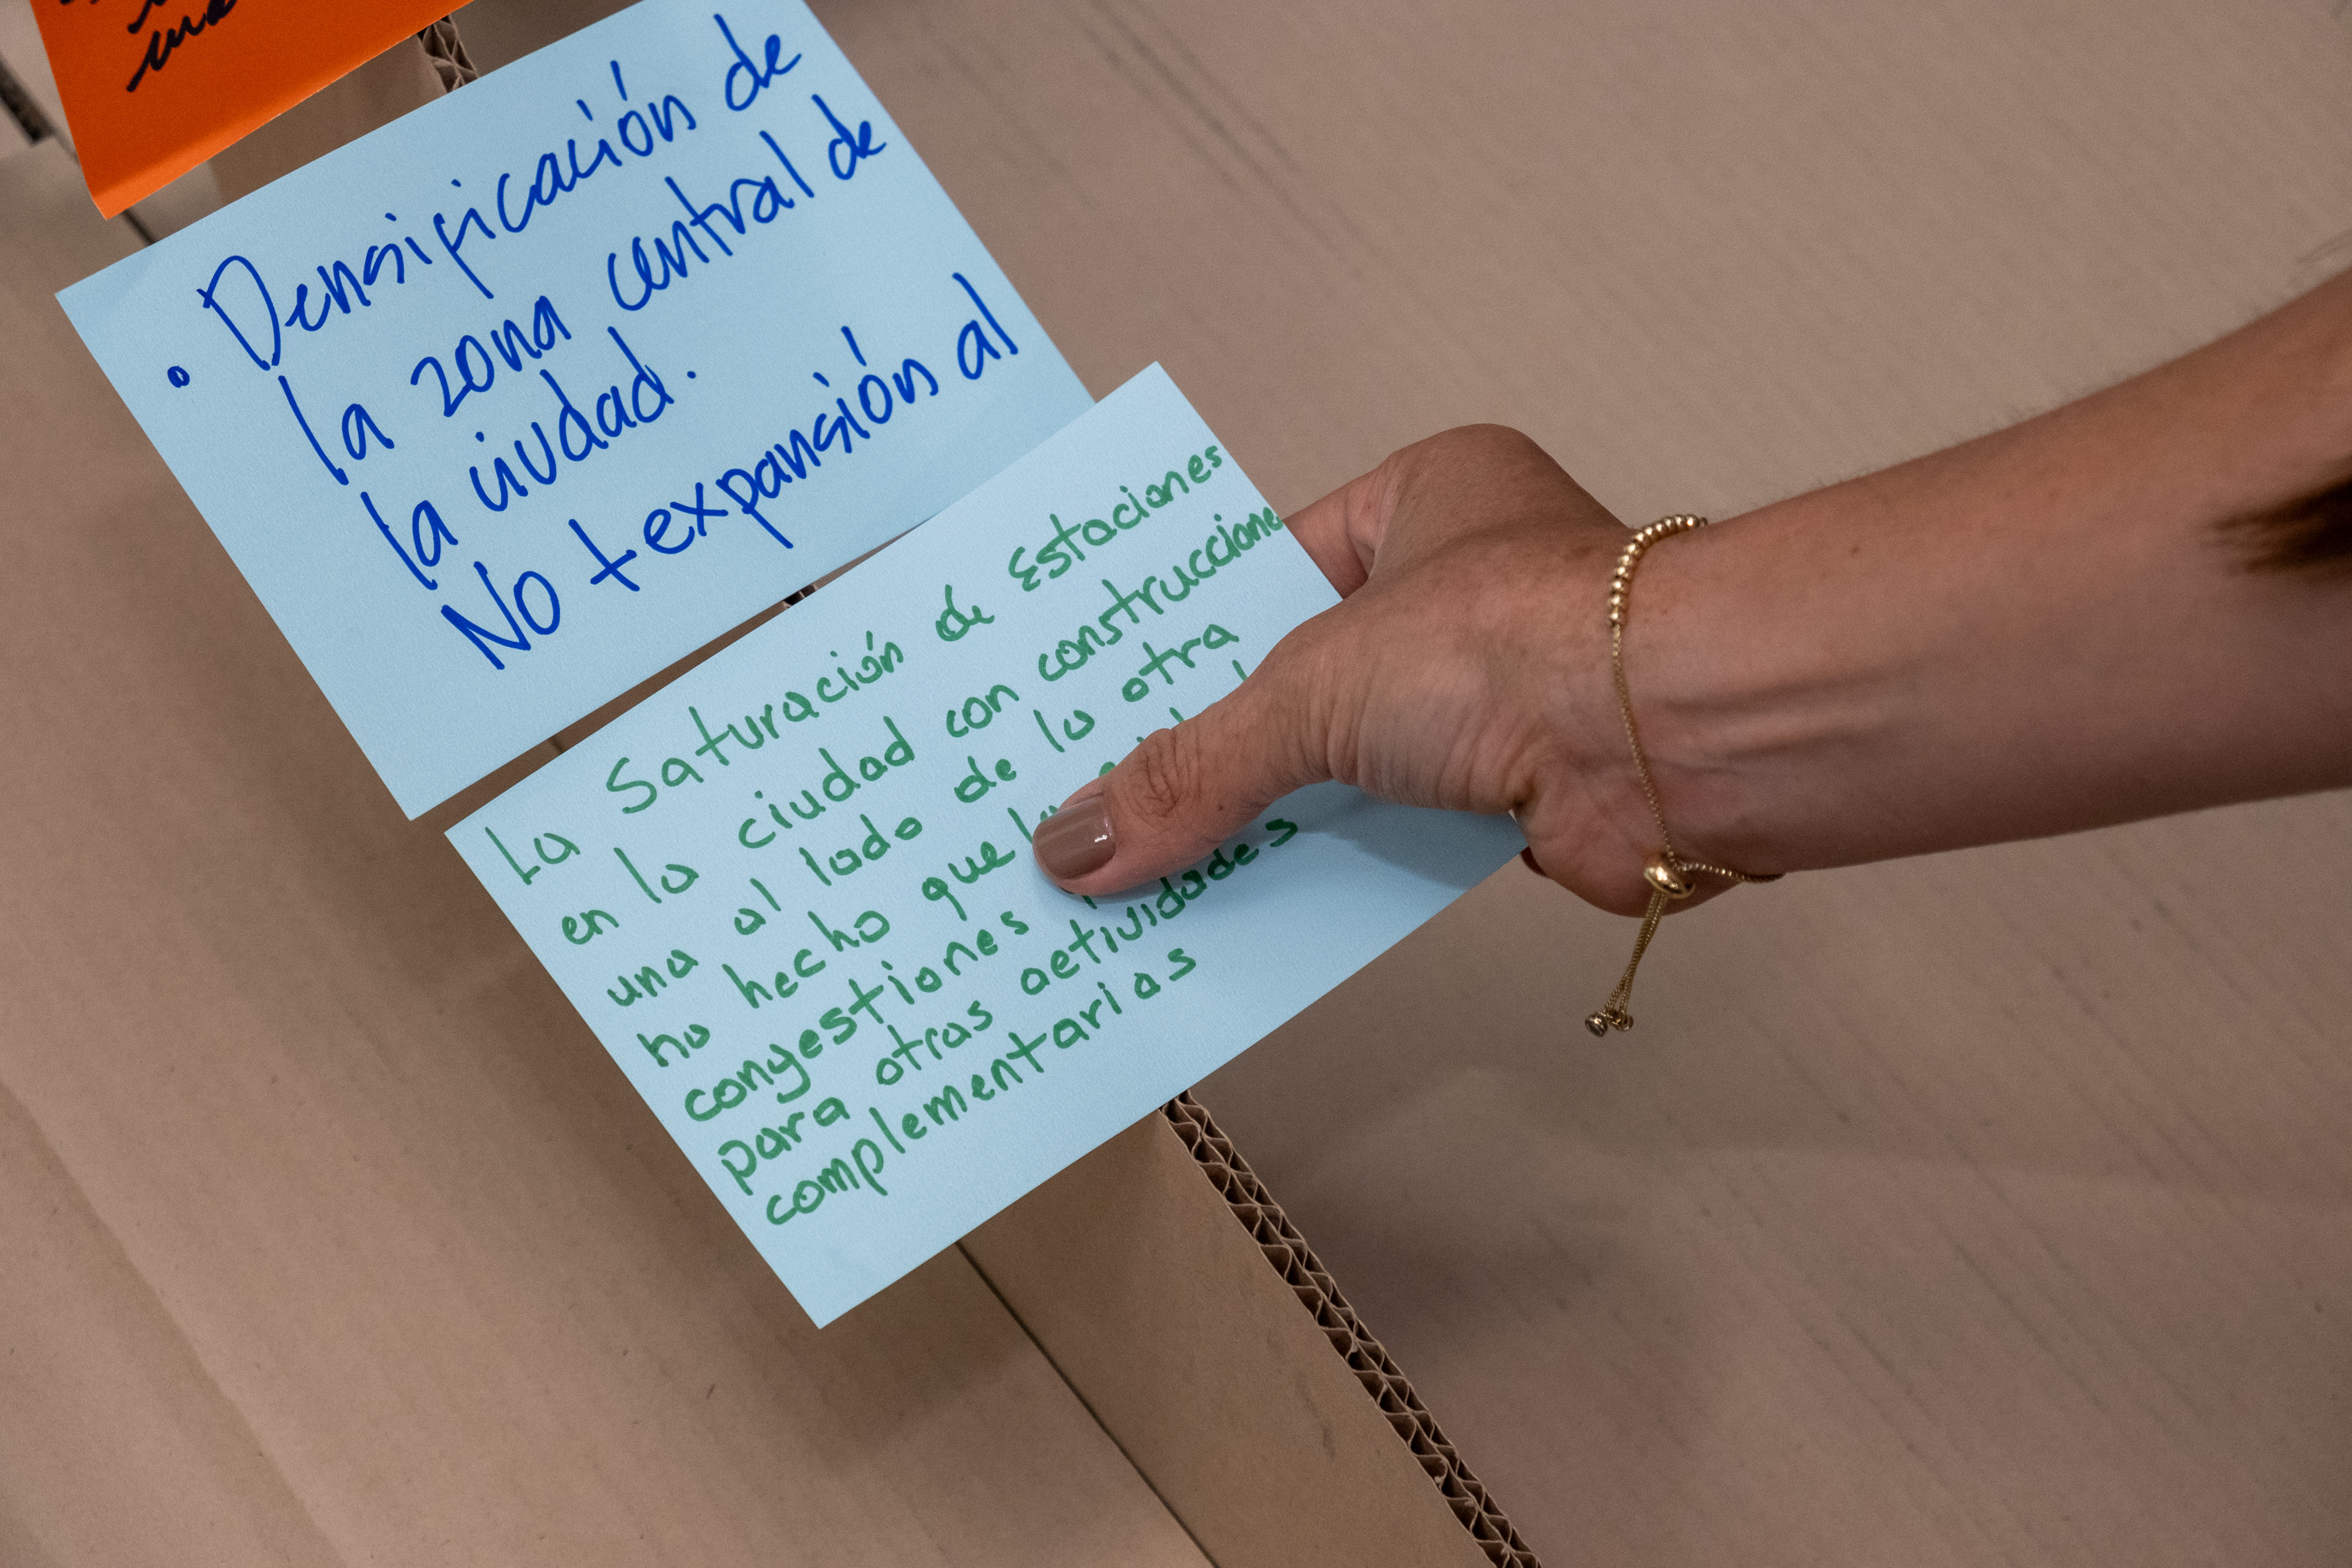 • Densificación de
la zona central de
la ciudad.
No + expansión al
La Saturación de Estaciones
en la ciudad con construccione
una al lado de la otra
ha hecho que
congestiones
para otras actividades
complementarias